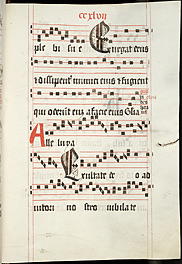 ccxlvii
ple bi su e Exurgat deus
et dissipent inimici eius et fugiant
qui oderunt eum a facie eius Glia
Alle luya
Exultate de o ad
iutori no stro iubilate